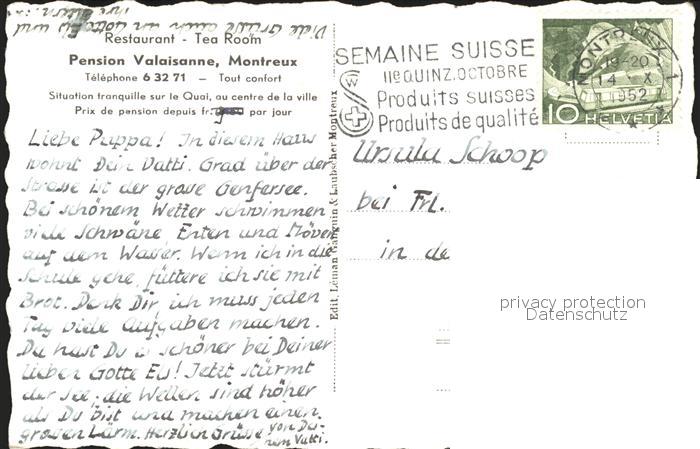 Viele Grüsse auch an Gotte Elsi und
ihre Eltern!
Restaurant - Tea Room
Pension Valaisanne, Montreux
Téléphone 6 32 71 – Tout confort
Situation tranquille sur le Quai, au centre de la ville
Prix de pension depuis fr. par jour
Liebe Puppa! In diesem Haus
wohnt Dein Vatti. Grad über der
Strasse ist der grosse Genfersee.
Bei schönem Wetter schwimmen
viele Schwäne, Enten und Möven
auf dem Wasser. Wenn ich in die
Schule gehe, füttere ich sie mit
Brot. Denk Dir, ich muss jeden
Tag viele Aufgaben machen.
Da hast Du es schöner bei Deiner
lieben Gotte Elsi! Jetzt stürmt
der See; die Wellen sind höher
als Du bist und machen einen
grossen Lärm. Herzlich Grüsse von Dei-
nem Vatti.
Edit. Léman Ganguin & Laubscher Montreux
SEMAINE SUISSE
IIe QUINZ. OCTOBRE
Produits suisses
Produits de qualité
MONTREUX 1
19-20
14. X.
1952
10 HELVETIA
Ursula Schoop
bei Frl.
in de
privacy protection
Datenschutz